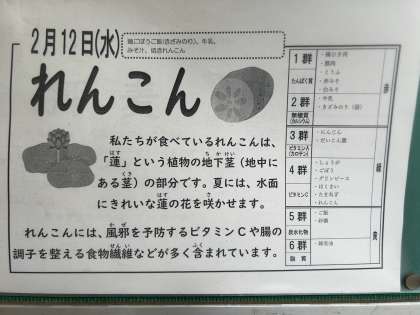 2月12日(水)
鶏ごぼうご飯(きざみのり)、牛乳、
みそ汁、焼きれんこん
れんこん
私たちが食べているれんこんは、
「蓮」という植物の地下茎(地中に
ある茎)の部分です。夏には、水面
にきれいな蓮の花を咲かせます。
れんこんには、風邪を予防するビタミンCや腸の
調子を整える食物繊維などが多く含まれています。
1群
たんぱく質
・鶏ひき肉
・鶏肉
・とうふ
・赤みそ
・白みそ
2群
無機質
(カルシウム)
・牛乳
・きざみのり(袋)
3群
ビタミンA
(カロテン)
・にんじん
・だいこん葉
4群
ビタミンC
・しょうが
・ごぼう
・グリンピース
・はくさい
・たまねぎ
・れんこん
5群
炭水化物
・ご飯
・砂糖
6群
脂質
赤
緑
黄